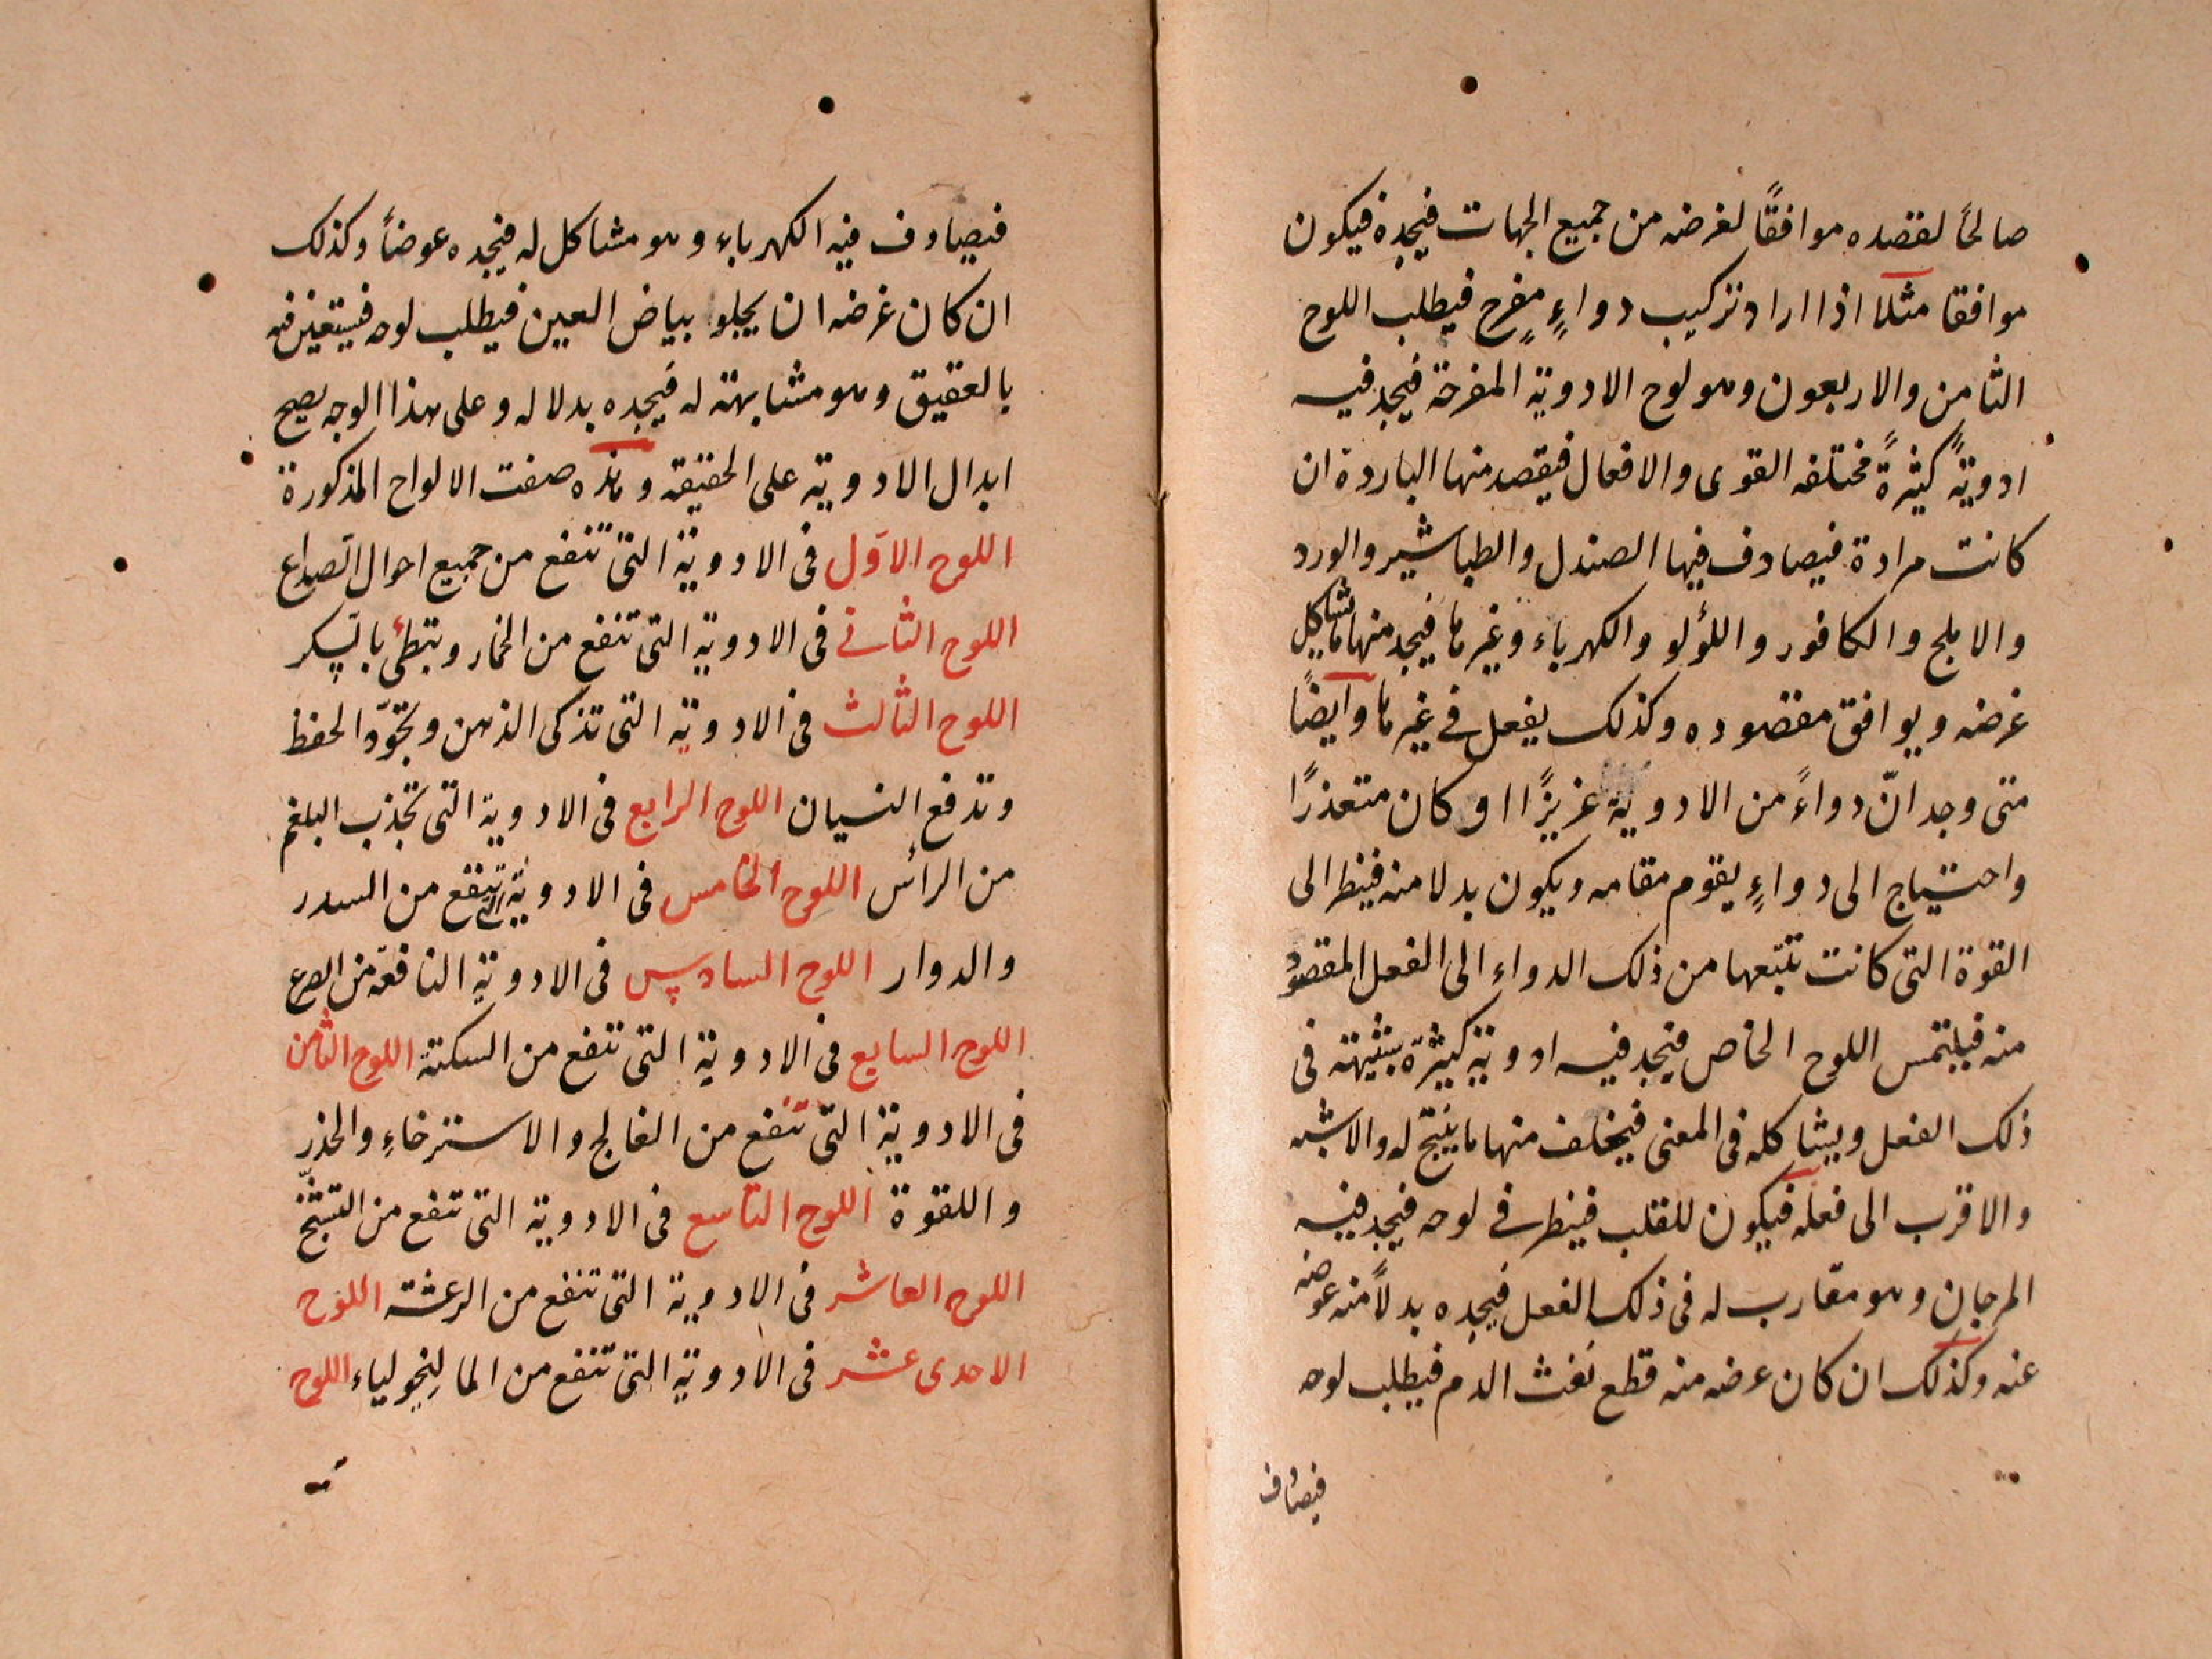 صالحًا لقصده موافقًا لغرضه من جميع الجهات فيجده فيكون
موافقا مثلا اذا اراد تركيب دواءٍ مفرح فيطلب اللوح
الثامن والاربعون وهو لوح الادوية المفرحة فيجد فيه
ادويةً كثيرةً مختلفه القوى والافعال فيقصد منها الباردة ان
كانت مرادة فيصادف فيها الصندل والطباشير والورد
والاملج والكافور واللؤلو والكهرباء وغيرها فيجد منها ما يشاكل
غرضه ويوافق مقصوده وكذلك يفعل في غيرها وايضًا
متى وجد انّ دواءً من الادوية عزيزًا او كان متعذرًا
واحتياج الى دواءٍ يقوم مقامه ويكون بدلا منه فينظر الى
القوة التى كانت تتبعها من ذلك الدواء الى الفعل المقصود
منه فيلتمس اللوح الخاص فيجد فيه ادوية كثيرة شبيهته فى
ذلك الفعل ويشاكله فى المعنى منها ما ينتج له والاشبه
والاقرب الى فعله فيكون للقلب فينظر في لوحه فيجد فيه
المرجان وهو مقارب له فى ذلك الفعل فيجده بدلاً منه عوضه
عنه وكذلك ان كان عرضه منه قطع نفث الدم فيطلب لوحه
فيصادف
فيصادف فيه الكهرباء وهو مشاكل له فيجده عوضاً وكذلك
ان كان غرضه ان يجلو بياض العين فيطلب لوحه فيه
بالعقيق وهو مشابهته له فيجده بدلا له وعلى هذا الوجه يصح
ابدال الادوية على الحقيقه وهذه صفت الالواح المذكورة
اللوح الاول فى الادوية التى تنفع من جميع احوال الصداع
اللوح الثاني فى الادوية التى تنفع من الخمار وتبطئ بالسكر
اللوح الثالث فى الادوية التى تذكى الذهن وتجوّد الحفظ
وتدفع النسيان اللوح الرابع فى الادوية التى تجذب البلغم
من الرأس اللوح الخامس فى الادوية التى تنفع من السدر
والدوار اللوح السادس فى الادوية النافعة من الصرع
اللوح السابع فى الادوية التى تنفع من السكتة اللوح الثامن
فى الادوية التى تنفع من الفالج والاسترخاءِ والخذر
واللقوة اللوح التاسع فى الادوية التى تنفع من التشنج
اللوح العاشر فى الادوية التى تنفع من الرعشة اللوح
الاحدى عشر فى الادوية التى تنفع من المالينخولياء اللوح